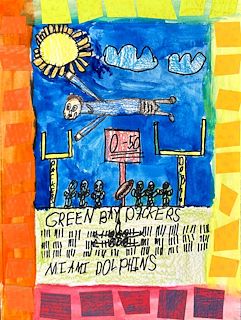 0-50
GREEN BAY PACKERS
MIAMI DOLPHINS